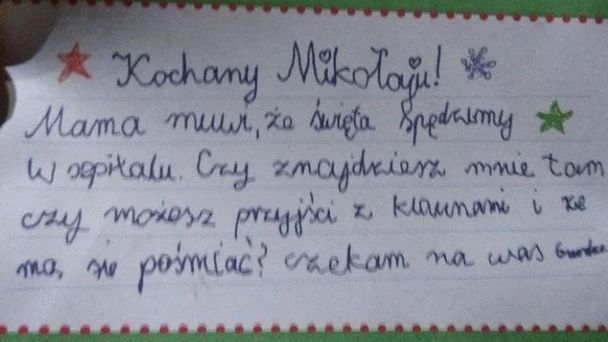 Kochany Mikołaju!
Mama muwi, że święta spędzimy
w szpitalu. Czy znajdziesz mnie tam
czy możesz przyjści z klaunami i ze
mą, się pośmiać? czekam na was